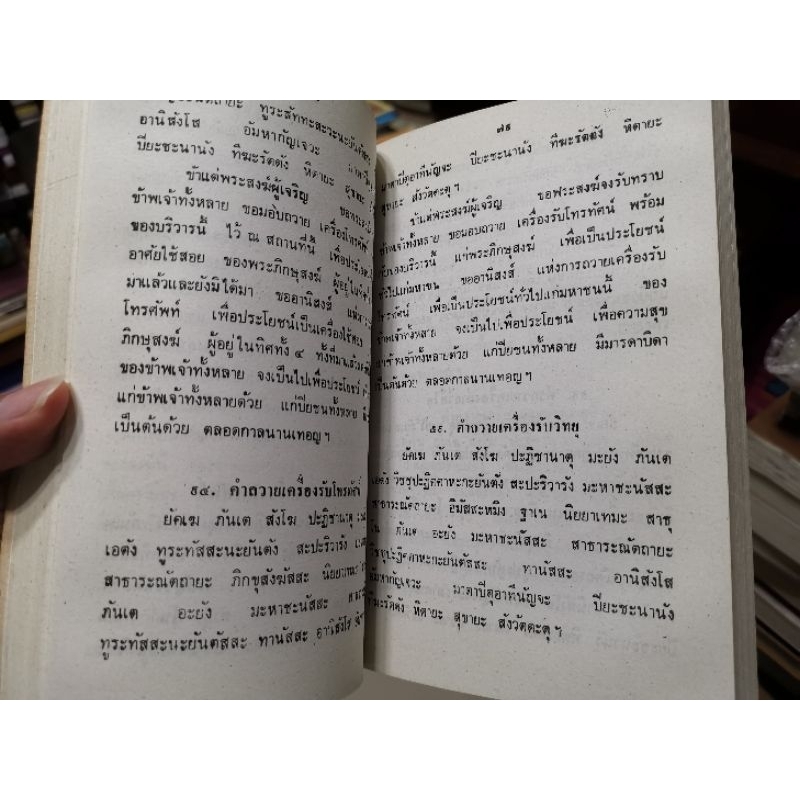 ทูระสัททะสะวะนะยันตัสสะ
อานิสังโส อัมหากัญเจวะ
ปิยะชะนานัง ทีฆะรัตตัง หิตายะ สุขายะ
ข้าแต่พระสงฆ์ผู้เจริญ
ข้าพเจ้าทั้งหลาย ขอมอบถวาย เครื่องโทรศัพท์
ของบริวารนี้ ไว้ ณ สถานที่นี้ เพื่อประโยชน์
อาศัยใช้สอย ของพระภิกษุสงฆ์ ผู้อยู่ในทิศ
มาแล้วและยังมิได้มา ขออานิสงส์
โทรศัพท์ เพื่อประโยชน์เป็นเครื่องใช้สอย
ภิกษุสงฆ์ ผู้อยู่ในทิศทั้ง ๔ ทั้งที่มาแล้ว
ของข้าพเจ้าทั้งหลาย จงเป็นไปเพื่อประโยชน์
แก่ข้าพเจ้าทั้งหลายด้วย แก่ปิยชนทั้งหลาย
เป็นต้นด้วย ตลอดกาลนานเทอญฯ
๕๔. คำถวายเครื่องรับโทรทัศน์
ยัคเฆ ภันเต สังโฆ ปะฏิชานาตุ
เอตัง ทูระทัสสะนะยันตัง สะปะริวารัง
สาธาระณัตถายะ ภิกขุสังฆัสสะ นิยยาเทมะ
ภันเต อะยัง มะหาชะนัสสะ
ทูระทัสสะนะยันตัสสะ ทานัสสะ อานิสังโส
๗๕
มาตาปิตุอาทีนัญจะ ปิยะชะนานัง ทีฆะรัตตัง หิตายะ
สุขายะ สังวัตตะตุฯ
ข้าแต่พระสงฆ์ผู้เจริญ ขอพระสงฆ์จงรับทราบ
ข้าพเจ้าทั้งหลาย ขอมอบถวาย เครื่องรับโทรทัศน์ พร้อม
ของบริวารนี้ แก่พระภิกษุสงฆ์ เพื่อเป็นประโยชน์
ทั่วไปแก่มหาชน ขออานิสงส์ แห่งการถวายเครื่องรับ
โทรทัศน์ เพื่อเป็นประโยชน์ทั่วไปแก่มหาชนนี้ ของ
ข้าพเจ้าทั้งหลาย จงเป็นไปเพื่อประโยชน์ เพื่อความสุข
แก่ข้าพเจ้าทั้งหลายด้วย แก่ปิยชนทั้งหลาย มีมารดาบิดา
เป็นต้นด้วย ตลอดกาลนานเทอญฯ
๕๕. คำถวายเครื่องรับวิทยุ
ยัคเฆ ภันเต สังโฆ ปะฏิชานาตุ มะยัง ภันเต
เอตัง วิชชุปะฏิคคาหะกะยันตัง สะปะริวารัง มะหาชะนัสสะ
สาธาระณัตถายะ อิมัสสะหมิง ฐาเน นิยยาเทมะ สาธุ
โน ภันเต อะยัง มะหาชะนัสสะ สาธาระณัตถายะ
วิชชุปะฏิคคาหะกะยันตัสสะ ทานัสสะ อานิสังโส
อัมหากัญเจวะ มาตาปิตุอาทีนัญจะ ปิยะชะนานัง
ทีฆะรัตตัง หิตายะ สุขายะ สังวัตตะตุฯ